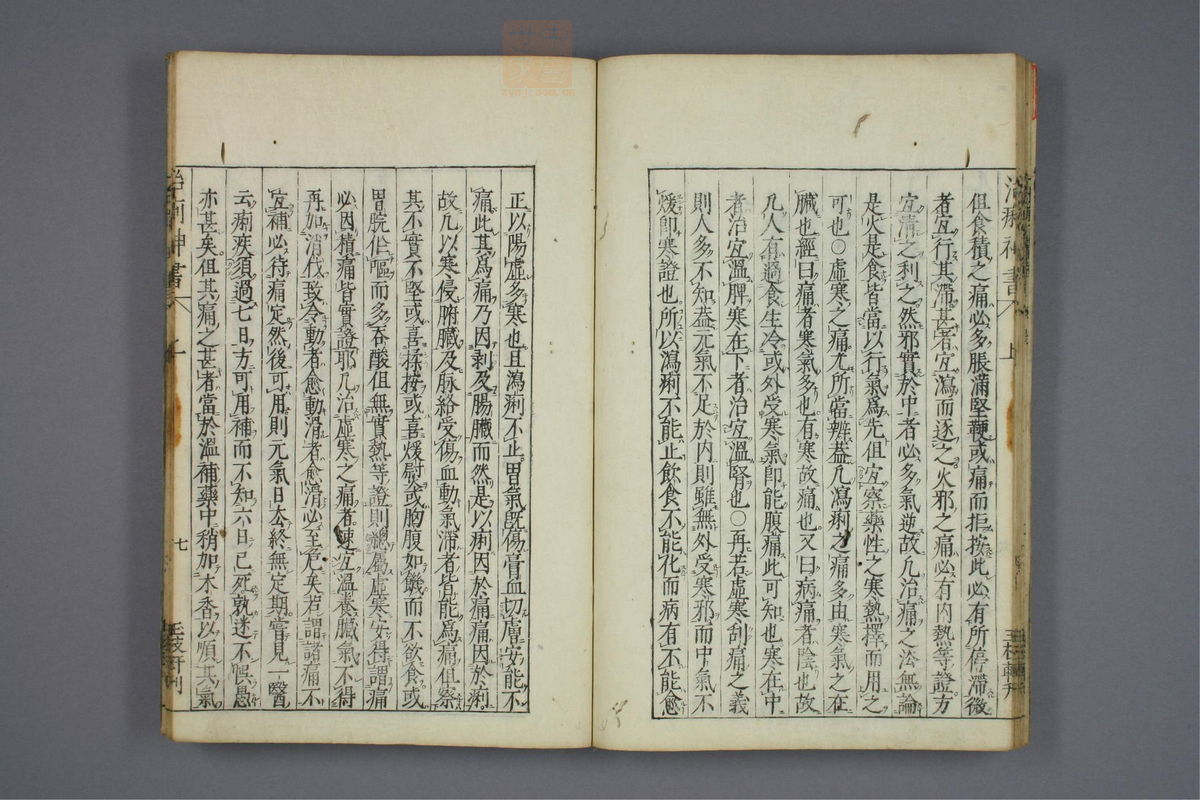 但食積之痛必多脹滿堅鞕或痛而拒按此必有所停滯微
者宜行其滯甚者宜瀉而逐之火邪之痛必有内熱等證方
宜清之利之然邪實於中者必多氣逆故凢治痛之法無論
是火是食皆當以行氣爲先但宜察藥性之寒熱擇而用之
可也○虛寒之痛尤所當辨葢凢瀉痢之痛多由寒氣之在
臓也經曰痛者寒氣多也有寒故痛也又曰病痛者陰也故
凢人有過食生冷或外受寒氣即能腹痛此可知也寒在中
者治宜溫脾寒在下者治宜溫腎也○再若虛寒刮痛之義
則人多不知葢元氣不足於内則雖無外受寒邪而中氣不
煖即寒證也所以瀉痢不能止飲食不能化而病有不能愈
正以陽虛多寒也且瀉痢不止胃氣既傷膏血切膚安能不
痛此其爲痛乃因剥及腸臓而然是以痢因於痛痛因於痢
故凢以寒侵腑臓及脉絡受傷血動氣滯者皆能爲痛但察
其不實不堅或喜揉按或喜煖熨或胸腹如饑而不欲食或
胃脘作嘔而多吞酸但無實熱等證則總屬虛寒安得謂痛
必因積痛皆實證耶凢治虛寒之痛者速宜溫養臓氣不得
再加消伐致令動者愈動滑者愈滑必至危矣若謂諸痛不
宜補必待痛定然後可用則元氣日去終無定期嘗見一醫
云痢疾須過七日方可用補而不知六日已死孰迷不悞愚
亦甚矣但其痛之甚者當於溫補藥中稍加木香以順其氣
治痢神書
上
治痢神書
七